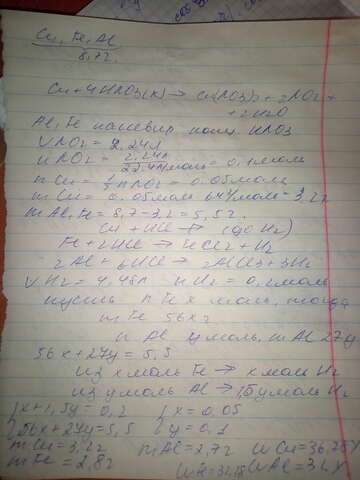 Cu, Fe, Al
8,7г.
Cu + 4HNO3(к) → Cu(NO3)2 + 2NO2 +
+ 2H2O
Al, Fe пассивир конц. HNO3
VNO2 = 2,24л
nNO2 = 2,24л / 22,4л/моль = 0,1моль
nCu = 1/2 nNO2 = 0,05моль
mCu = 0,05моль 64г/моль = 3,2г
mAl,Fe = 8,7 - 3,2 = 5,5г.
Cu + HCl ↛ (до H2)
Fe + 2HCl → FeCl2 + H2
2Al + 6HCl → 2AlCl3 + 3H2
VH2 = 4,48л nH2 = 0,2моль
пусть n Fe x моль, тогда
m Fe 56x г
n Al y моль, m Al 27y
56x + 27y = 5,5
из x моль Fe → x моль H2
из y моль Al → 1,5y моль H2
{x + 1,5y = 0,2 {x = 0,05
{56x + 27y = 5,5 {y = 0,1
mCu = 3,2г mAl = 2,7г wCu = 36,78%
mFe = 2,8г wFe = 32,18% wAl = 31%